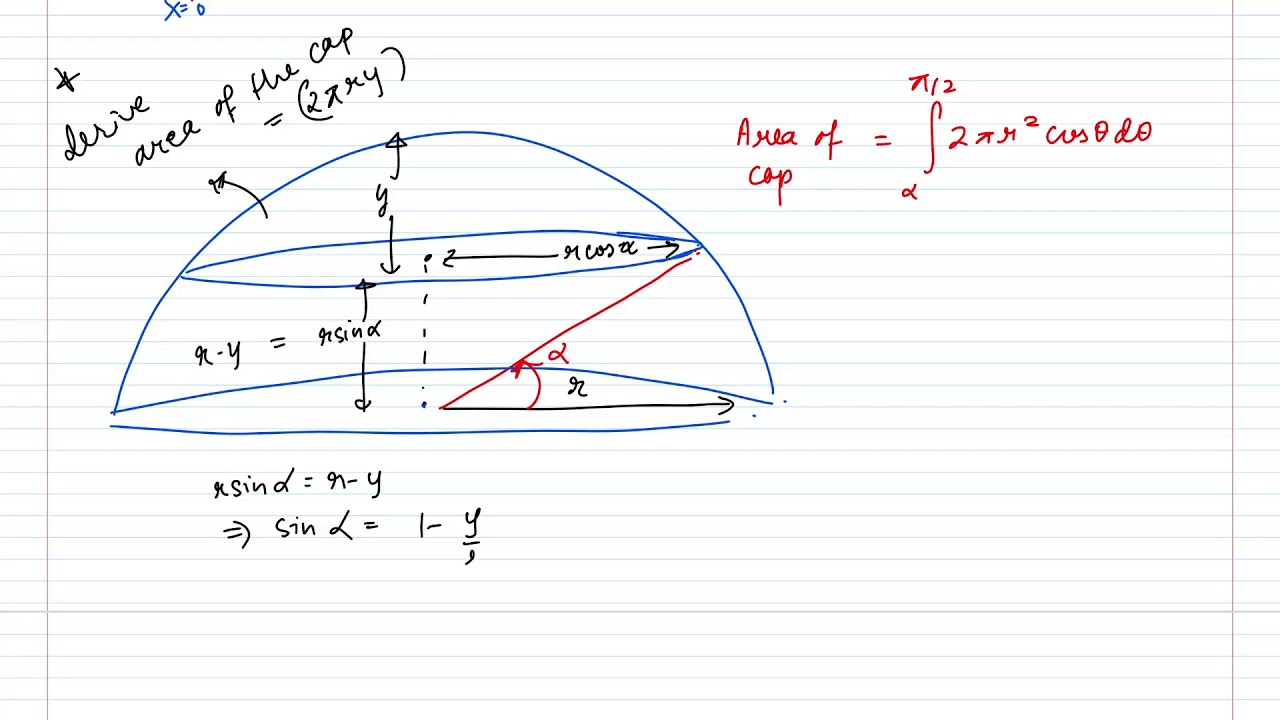 x=0
*
derive
area of the cap
= (2πry)
Area of cap = ∫_α^{π/2} 2πr² cosθ dθ
y
r cosα
r-y = r sinα
α
r
r sinα = r-y
⇒ sin α = 1- y/